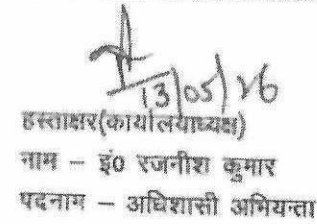 13/05/26
हस्ताक्षर(कार्यालयाध्यक्ष)
नाम – इं0 रजनीश कुमार
पदनाम – अधिशासी अभियन्ता